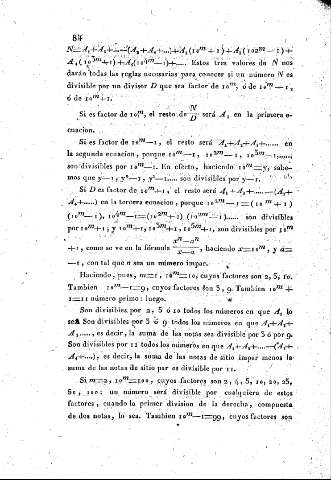 84
N=A₁+A₂+...—(A₂+A₄+...)+A₁(10^m+1)+A₂(102^m—1)+
A₃(10^3m+1)+A₄(10^4m—1)+.... Estos tres valores de N nos
darán todas las reglas necesarias para conocer si un número N es
divisible por un divisor D que sea factor de 10^m, ó de 10^m—1,
ó de 10^m+1.
Si es factor de 10^m, el resto de N/D será A₁ en la primera e-
cuacion.
Si es factor de 10^m—1, el resto será A₁+A₂+A₃+...... en
la segunda ecuacion, porque 10^m—1, 10^2m—1, 10^3m—1,.....
son divisibles por 10^m—1. En efecto, haciendo 10^m=y, sabe-
mos que y—1, y²—1, y³—1..... son divisibles por y—1.
Si D es factor de 10^m+1, el resto será A₁+A₃+.....—(A₂+
A₄+.....) en la tercera ecuacion, porque 10^2m—1=(10^m+1)
(10^m—1), 10^4m—1=(10^2m+1) (10^2m—1)...... son divisibles
por 10^m+1; y 10^m+1, 10^3m+1, 10^5m+1, son divisibles por 10^m
+1, como se ve en la fórmula x^m—a^m/x—a, haciendo x=10^m, y a=
—1, con tal que n sea un número impar.
Haciendo, pues, m=1, 10^m=10, cuyos factores son 2, 5, 10.
Tambien 10^m—1=9, cuyos factores son 3, 9. Tambien 10^m+
1=11 número primo: luego.
Son divisibles por 2, 5 ó 10 todos los números en que A₁ lo
sea. Son divisibles por 3 ó 9 todos los números en que A₁+A₂+
A₃....., es decir, la suma de las notas sea divisible por 3 ó por 9.
Son divisibles por 11 todos los números en que A₁+A₃+....—(A₂+
A₄+....), es decir, la suma de las notas de sitio impar menos la
suma de las notas de sitio par es divisible por 11.
Si m=2, 10^m=100, cuyos factores son 2, 4, 5, 10, 20, 25,
50, 100: un número será divisible por cualquiera de estos
factores, cuando la primer division de la derecha, compuesta
de dos notas, lo sea. Tambien 10^m—1=99, cuyos factores son